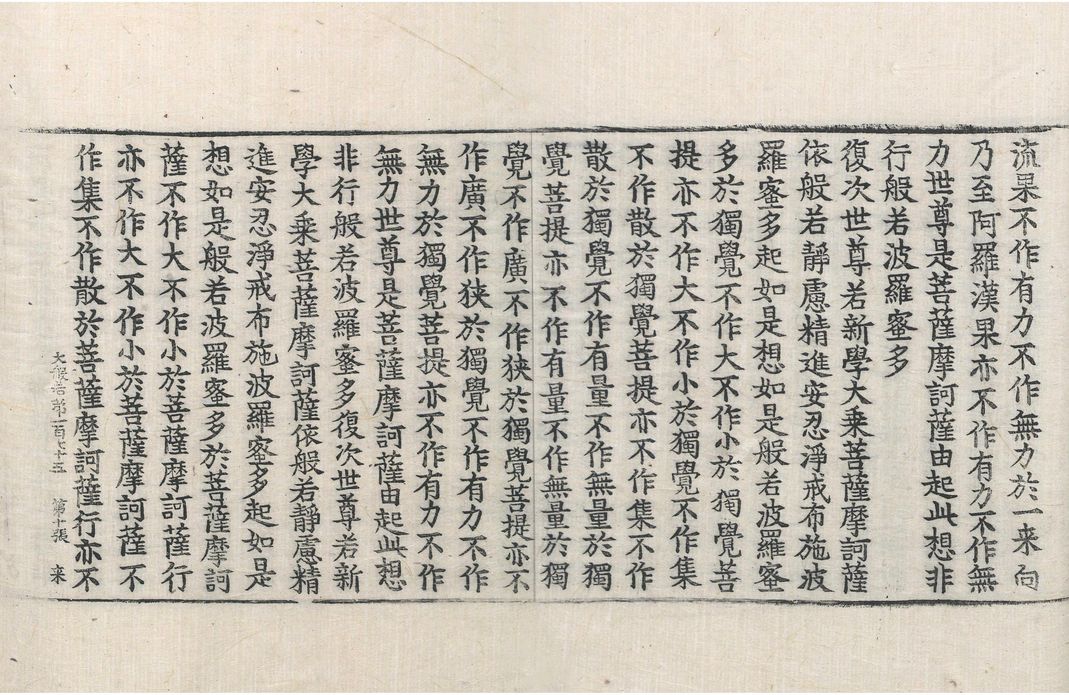 流果不作有力不作無力於一来向
乃至阿羅漢果亦不作有力不作無
力世尊是菩薩摩訶薩由起此想非
行般若波羅蜜多
復次世尊若新學大乗菩薩摩訶薩
依般若靜慮精進安忍淨戒布施波
羅蜜多起如是想如是般若波羅蜜
多於獨覺不作大不作小於獨覺菩
提亦不作大不作小於獨覺不作集
不作散於獨覺菩提亦不作集不作
散於獨覺不作有量不作無量於獨
覺菩提亦不作有量不作無量於獨
覺不作廣不作狹於獨覺菩提亦不
作廣不作狹於獨覺不作有力不作
無力於獨覺菩提亦不作有力不作
無力世尊是菩薩摩訶薩由起此想
非行般若波羅蜜多復次世尊若新
學大乗菩薩摩訶薩依般若靜慮精
進安忍淨戒布施波羅蜜多起如是
想如是般若波羅蜜多於菩薩摩訶
薩不作大不作小於菩薩摩訶薩行
亦不作大不作小於菩薩摩訶薩不
作集不作散於菩薩摩訶薩行亦不
大般若第一百七十五 第十張 来